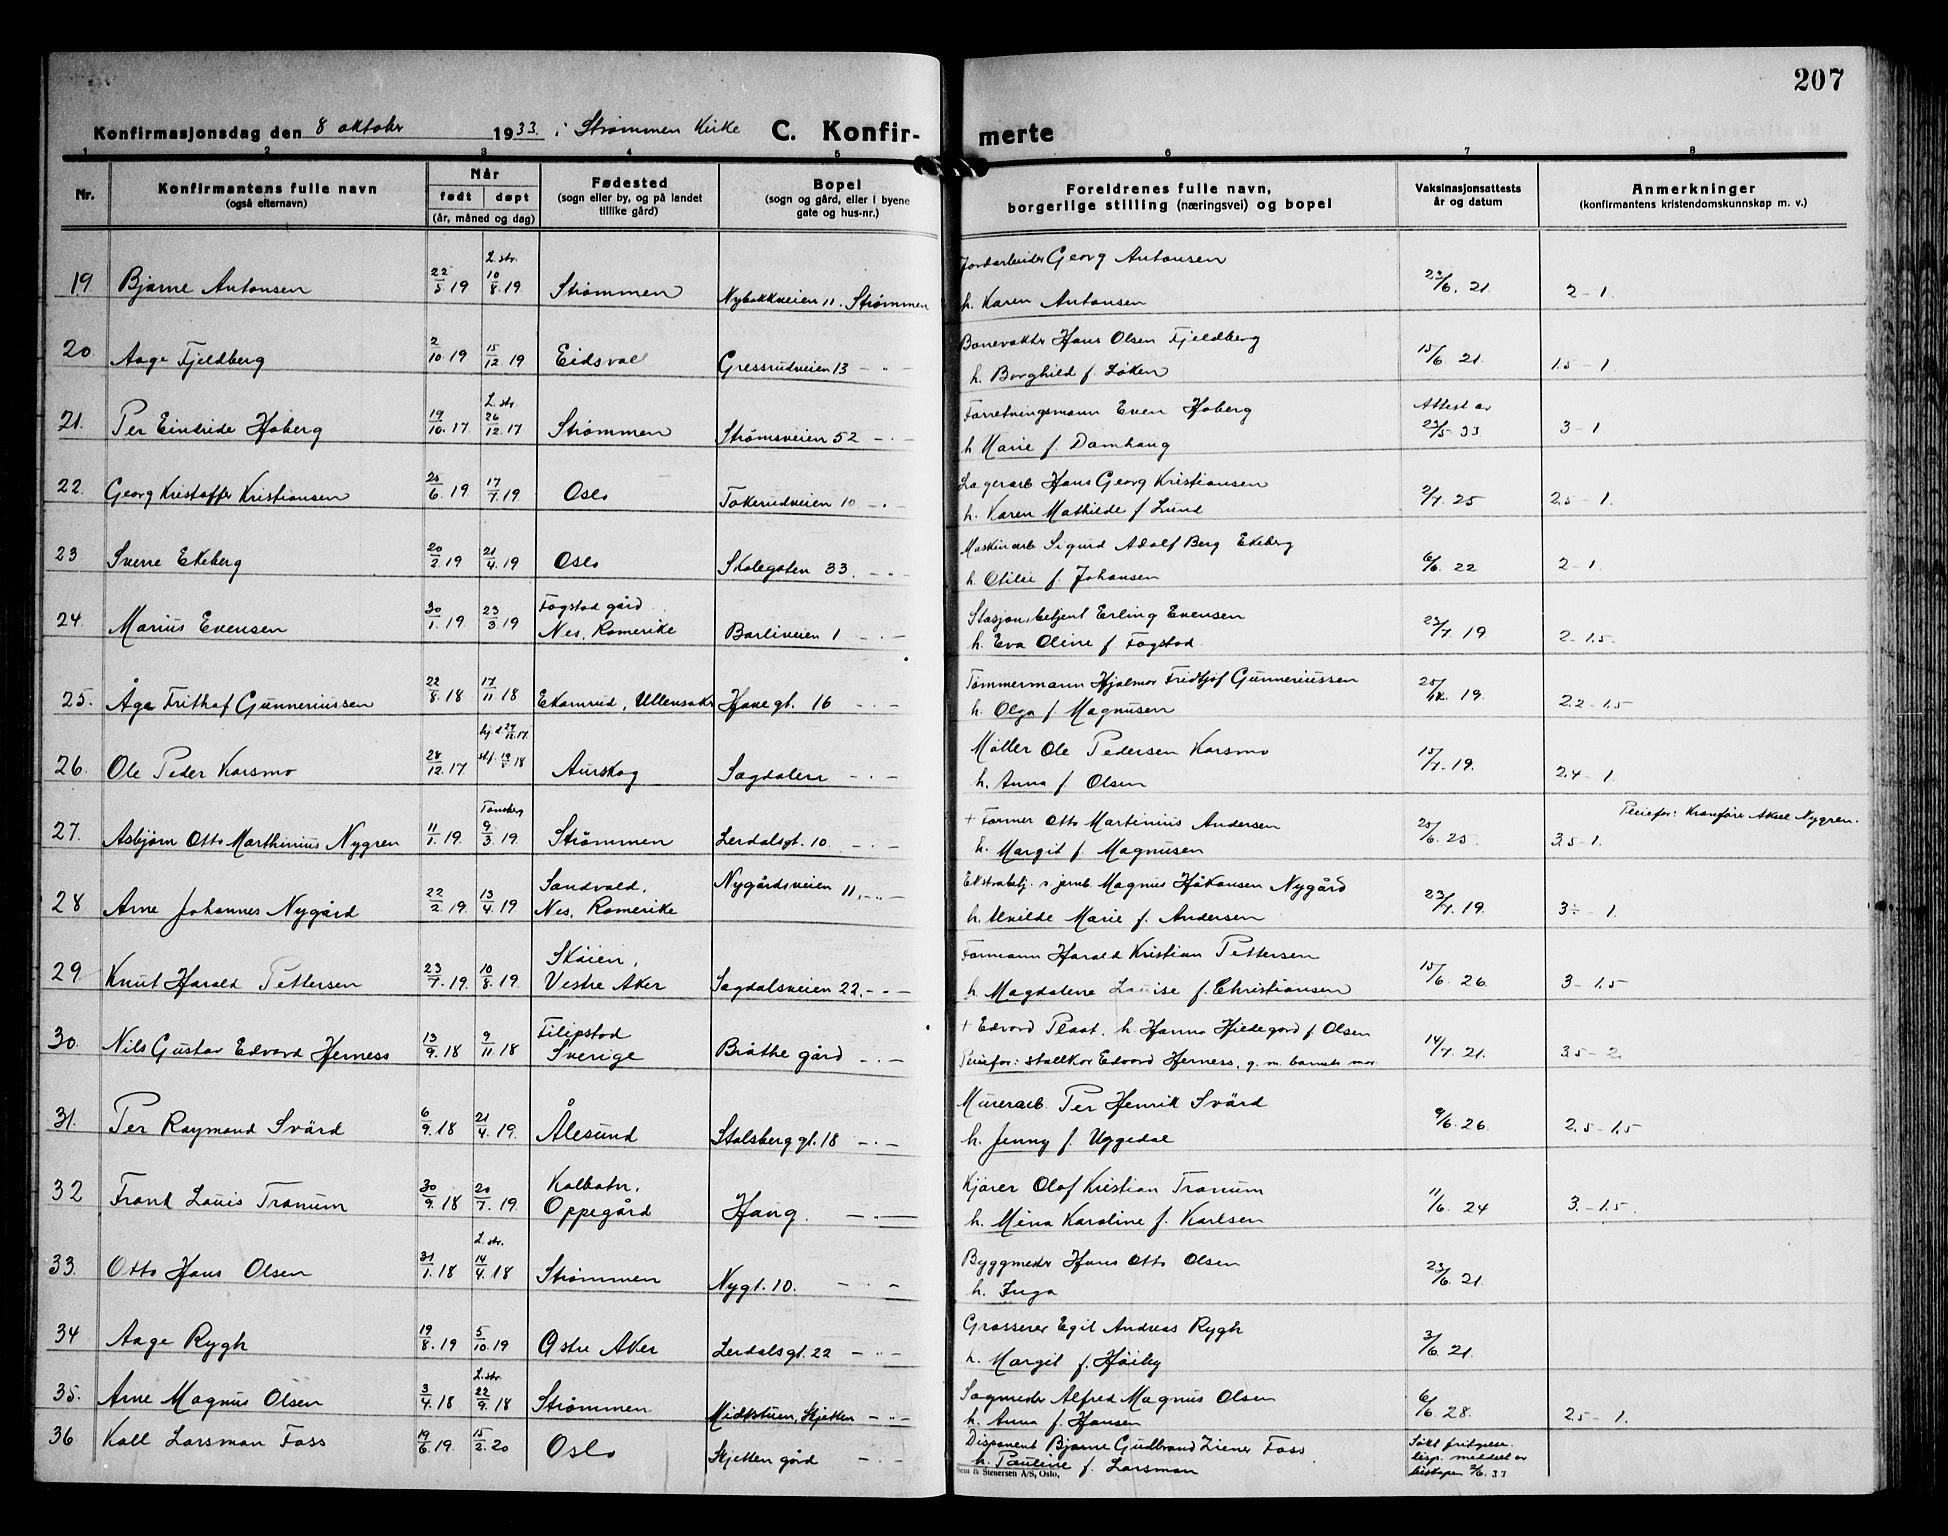 207
Konfirmasjonsdag den 8 oktobr 1933 i Strømmen Kirke C. Konfir- merte
1 2 3 4 5 6 7 8
Nr. Konfirmantens fulle navn (også efternavn) Når født døpt (år, måned og dag) Fødested (sogn eller by, og på landet tillike gård) Bopel (sogn og gård, eller i byene gate og hus-nr.) Foreldrenes fulle navn, borgerlige stilling (næringsvei) og bopel Vaksinasjonsattests år og datum Anmerkninger (konfirmantens kristendomskunnskap m. v.)
19 Bjarne Antonsen 22/5 19 L. str. 10/8 19 Strømmen Nybakkveien 11. Strømmen Jordarbeider Georg Antonsen
h. Karen Antonsen 23/6. 21 2 - 1.
20. Aage Fjeldberg 2/10. 19 15/12 19 Eidsvol Gressrudveien 13 - " - Banevokter Hans Olsen Fjeldberg
h. Borghild f. Løken 15/6 21. 1.5 - 1
21. Per Eindride Hoberg 19/10. 17. L. str 26/12. 17 Strømmen Strømsveien 52 - " - Forretningsmann Even Hoberg
h Marie f. Damhaug Attest av 23/5 33 3 - 1
22. Georg Kristoffer Kristiansen 25/6. 19 17/7. 19 Oslo Tokerudveien 10 - " - Lagerarb Hans Georg Kristiansen
h. Karen Mathilde f Lund 2/7. 25 2.5 - 1.
23 Sverre Ekeberg 20/2. 19 21/4. 19 Oslo Skolegaten 33. - " - Maskinarb Sigurd Adolf Berg Ekeberg
h. Otilie f. Johansen 6/6. 22 2 - 1.
24. Marius Evensen 30/1. 19 23/3 19 Fogstad gård Nes, Romerike Barliveien 1 - " - Stasjonsbetjent Erling Evensen
h. Eva Oline f Fogstad. 23/7. 19 2 - 1.5.
25. Åge Frithof Gunneriussen 22/8. 18 17/11 18 Ekornrud, Ullensaker Havegt. 16 - " - Tømmermann Hjalmar Fridtjof Gunneriussen
h. Olga f. Magnusen 19. 2.2 - 1.5
26. Ole Peder Korsmo 28/12. 17 18 Aurskog Sagdalen - " - Møller Ole Pedersen Korsmo
h. Anna f. Olsen 15/7. 19. 2.4 - 1.
27. Asbjørn Otto Marthinius Nygren 11/1. 19 Tønsberg 9/3. 19 Strømmen Lerdalsgt. 10 - " - + Former Otto Martinius Andersen
h. Margit f. Magnusen 25/6. 25. 3.5 - 1. Pleiefor: Kranfører Aksel Nygren.
28. Arne Johannes Nygård 22/2. 19. 13/4. 19 Sandvold, Nes, Romerike Nygårdsveien 11. - " - Ekstrabetj. v. jernb. Magnus Håkonsen Nygård
h. Alvilde Marie f. Andersen 23/7. 19. 3 ÷ - 1.
29. Knut Harald Pettersen 23/7. 19. 10/8. 19 Skøien, Vestre Aker Sagdalsveien 22. - " - Formann Harald Kristian Pettersen
h. Magdalene Louise f. Christiansen 15/6. 26. 3 - 1.5
30. Nils Gustav Edvard Herness 13/9. 18 9/11. 18 Filipstad Sverige Bråthe gård - " - + Edvard Plaat, h. Hanna Hildegard f. Olsen
Pleiefor: stallkar Edvard Herness, g. m. barnets mor 14/7. 21. 3.5 - 2.
31. Per Raymond Svärd 6/9. 18 21/4. 19. Ålesund Stalsberggt. 18 - " - Murerarb. Per Henrik Svärd
h. Jenny f. Uggedal 9/6. 26. 2.5 - 1.5
32 Frank Louis Tranum 30/9. 18 20/7. 19. Kolbotn, Oppegård Haug. - " - Kjører Olaf Kristian Tranum
h. Mina Karoline f. Karlsen 11/6. 24 3. - 1.5.
33. Otto Hans Olsen 31/1. 18 L. str. 14/4. 18 Strømmen Nygt. 10. - " - Byggmester Hans Otto Olsen
h. Inga 23/6. 21.
34 Aage Rygh 19/8. 19 5/10. 19 Østre Aker Lerdalsgt. 22 - " - Grosserer Egil Andreas Rygh
h. Margit f. Høiby 3/6. 21.
35. Arne Magnus Olsen 3/4. 18 L. str 22/9. 18 Strømmen Midtstuen, Skjetten - " - Sagmester Alfred Magnus Olsen
h. Anna f. Hansen 6/6. 28. 2.5 - 1.
36 Kall Larsman Foss 19/6. 19. 15/2. 20 Oslo Skjetten gård - " - Disponent Bjarne Gudbrand Ziener Foss
h. Pauline f. Larsman Søkt fritgelse. disp. meddelt av bispen 2/6. 33
Sem & Stenersen A/S, Oslo,